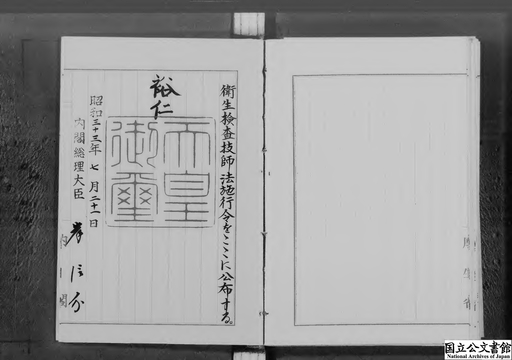 衛生検査技師法施行令をここに公布する。
裕仁
天皇御璽
昭和三十三年七月二十一日
内閣総理大臣
岸信介
内閣
厚生省
国立公文書館
National Archives of Japan